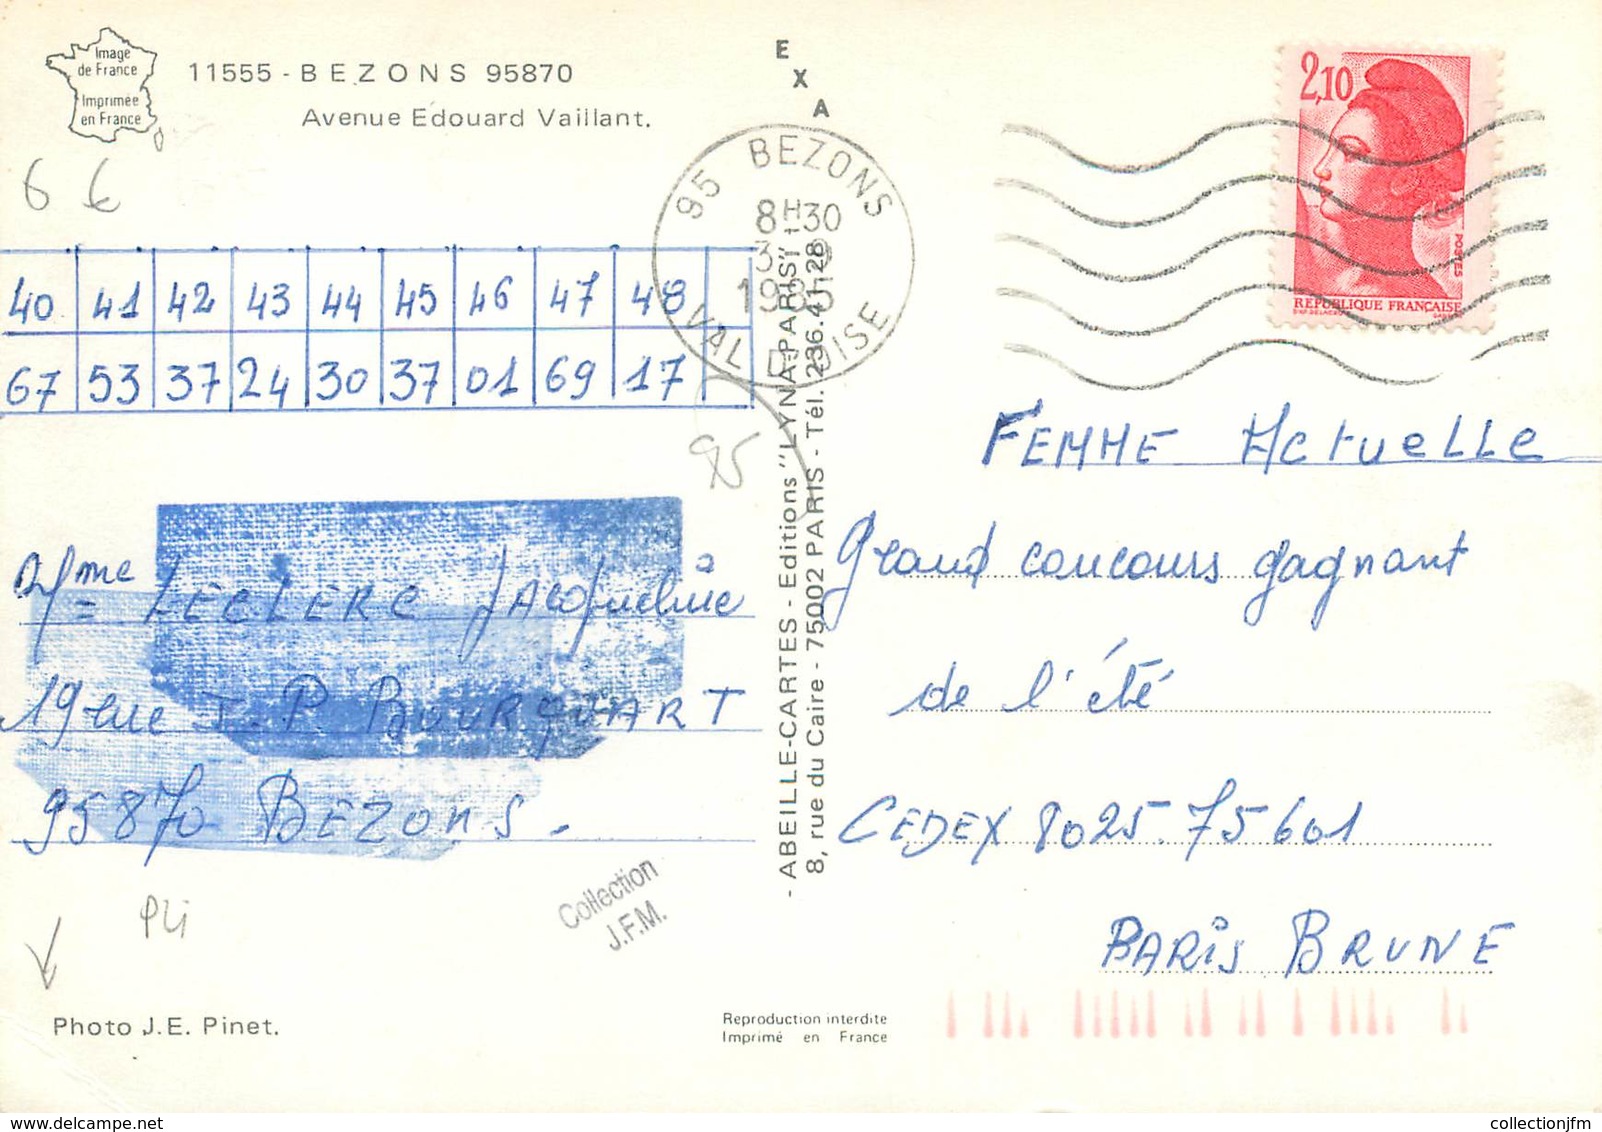 Image
de France
Imprimée
en France
11555 - BEZONS 95870
Avenue Edouard Vaillant.
EXA
6 €
95 BEZONS
8H30
VAL D'OISE
2,10
POSTES
REPUBLIQUE FRANÇAISE
40 41 42 43 44 45 46 47 48
67 53 37 24 30 37 01 69 17
95
Mme LECLERC Jacqueline
19 rue J. P BOURQUART
95870 BEZONS.
- ABEILLE-CARTES - Editions "LYNA-PARIS" -
8, rue du Caire - 75002 PARIS - Tél. 236.41.28
FEMME Actuelle
Grand concours gagnant
de l'été
CEDEX 8025.75601
PARIS BRUNE
Pli
Collection
J.F.M.
Photo J.E. Pinet.
Reproduction interdite
Imprimé en France
collectionjfm